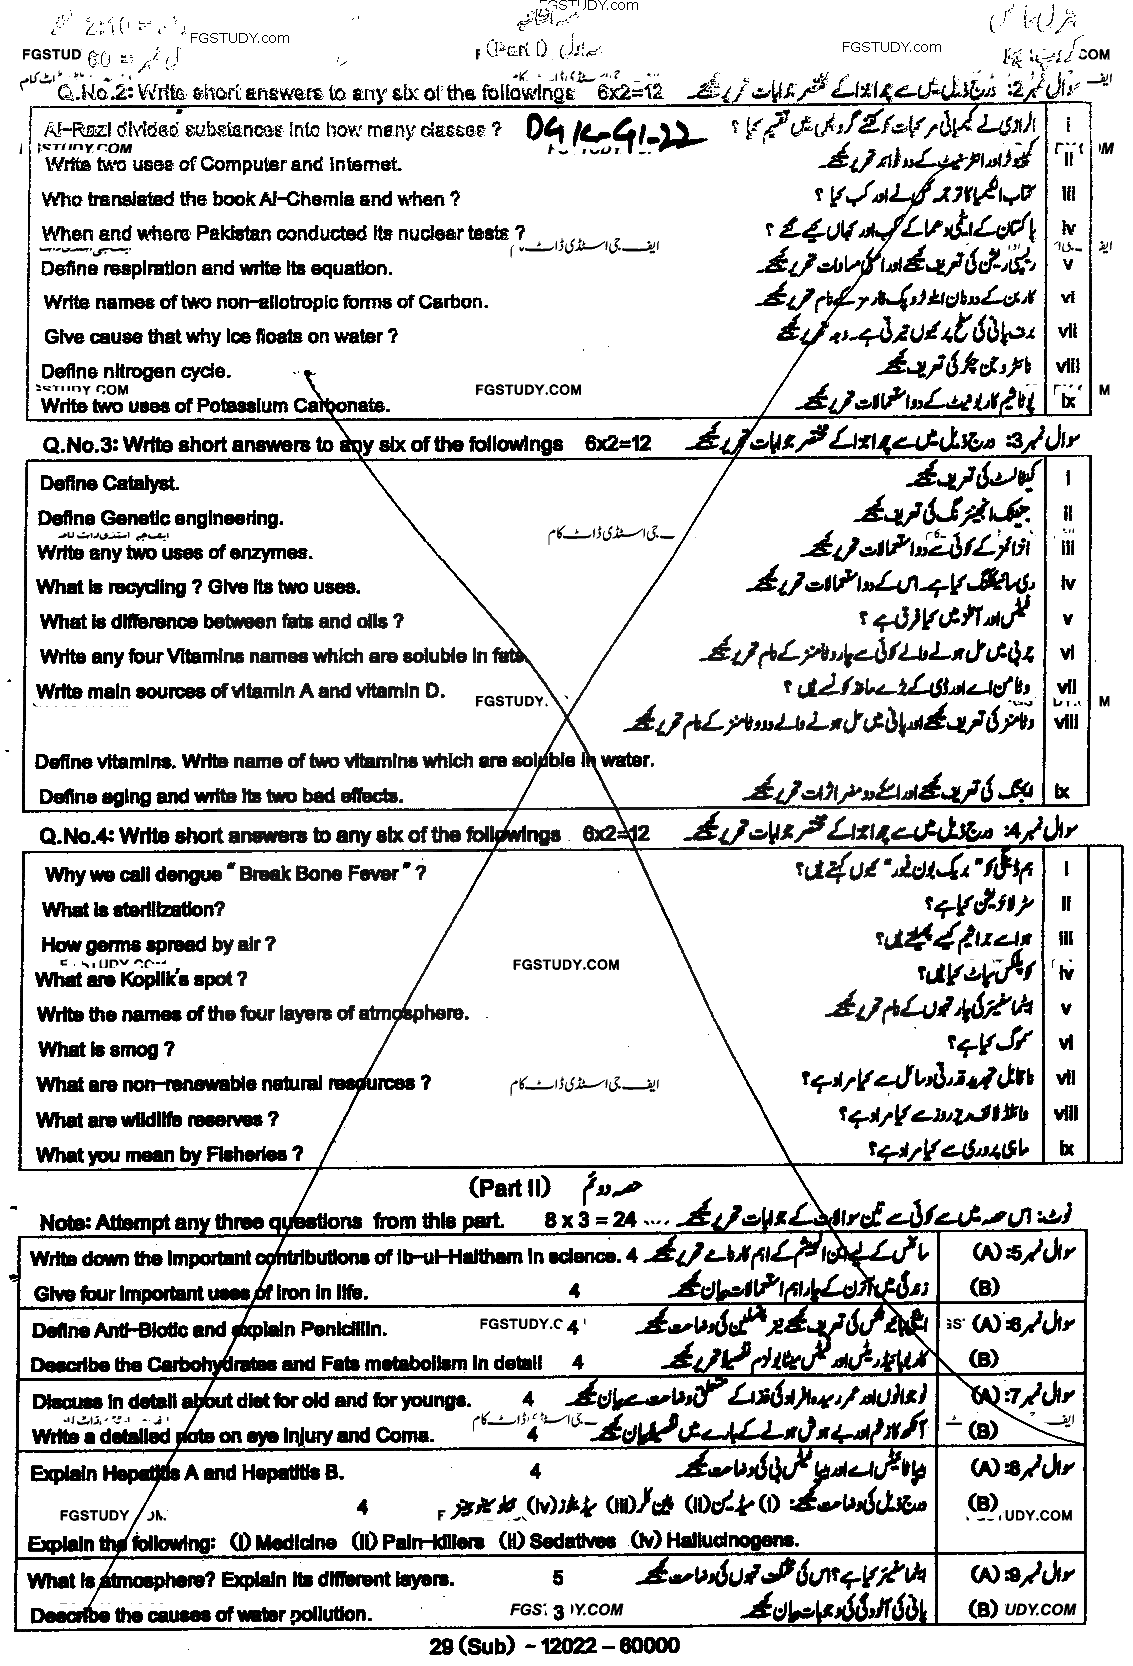 FGSTUDY.com
FGSTUDY.com FGSTUDY.com
(Part I) حصہ اول
Q.No.2: Write short answers to any six of the followings 6x2=12 سوال نمبر 2: درج ذیل میں سے چھ اجزا کے مختصر جوابات تحریر کیجئے
Al-Razi divided substances into how many classes ? DGK-G1-22 الرازی نے کیمیائی مرکبات کو کتنے گروپس میں تقسیم کیا ؟ i
Write two uses of Computer and Internet. کمپیوٹر اور انٹرنیٹ کے دو فوائد تحریر کیجئے ii
Who translated the book Al-Chemia and when ? کتاب الکیمیا کا ترجمہ کس نے اور کب کیا ؟ iii
When and where Pakistan conducted its nuclear tests ? پاکستان کے ایٹمی دھماکے کب اور کہاں کیے گئے ؟ iv
ایف جی اسٹڈی ڈاٹ کام
Define respiration and write its equation. ریسپی ریشن کی تعریف کیجئے اور اسکی مساوات تحریر کیجئے v
Write names of two non-allotropic forms of Carbon. کاربن کے دو نان ایلوٹروپک فارمز کے نام تحریر کیجئے vi
Give cause that why ice floats on water ? برف پانی کی سطح پر کیوں تیرتی ہے۔ وجہ تحریر کیجئے vii
Define nitrogen cycle. نائٹروجن چکر کی تعریف کیجئے viii
FGSTUDY.COM
Write two uses of Potassium Carbonate. پوٹاشیم کاربونیٹ کے دو استعمالات تحریر کیجئے ix
Q.No.3: Write short answers to any six of the followings 6x2=12 سوال نمبر 3: درج ذیل میں سے چھ اجزا کے مختصر جوابات تحریر کیجئے
Define Catalyst. کیٹالسٹ کی تعریف کیجئے i
Define Genetic engineering. جینیٹک انجینئرنگ کی تعریف کیجئے ii
Write any two uses of enzymes. انزائمز کے کوئی سے دو استعمالات تحریر کیجئے iii
What is recycling ? Give its two uses. ری سائیکلنگ کیا ہے۔ اس کے دو استعمالات تحریر کیجئے iv
What is difference between fats and oils ? فیٹس اور آئلز میں کیا فرق ہے ؟ v
Write any four Vitamins names which are soluble in fats. چربی میں حل ہونے والے کوئی سے چار وٹامنز کے نام تحریر کیجئے vi
Write main sources of vitamin A and vitamin D. وٹامن اے اور ڈی کے بڑے ماخذ کونسے ہیں ؟ vii
FGSTUDY.
وٹامنز کی تعریف کیجئے اور پانی میں حل ہونے والے دو وٹامنز کے نام تحریر کیجئے viii
Define vitamins. Write name of two vitamins which are soluble in water.
Define aging and write its two bad effects. ایجنگ کی تعریف کیجئے اور اسکے دو مضر اثرات تحریر کیجئے ix
Q.No.4: Write short answers to any six of the followings 6x2=12 سوال نمبر 4: درج ذیل میں سے چھ اجزا کے مختصر جوابات تحریر کیجئے
Why we call dengue " Break Bone Fever " ? ہم ڈینگی کو " بریک بون فیور " کیوں کہتے ہیں؟ i
What is sterilization? سٹرلائزیشن کیا ہے؟ ii
How germs spread by air ? ہوا سے جراثیم کیسے پھیلتے ہیں؟ iii
FGSTUDY.COM
What are Koplik's spot ? کوپلکس سپاٹ کیا ہیں؟ iv
Write the names of the four layers of atmosphere. ایٹماسفیئر کی چار تہوں کے نام تحریر کیجئے v
What is smog ? سموگ کیا ہے؟ vi
What are non-renewable natural resources ? ایف جی اسٹڈی ڈاٹ کام ناقابل تجدید قدرتی وسائل سے کیا مراد ہے؟ vii
What are wildlife reserves ? وائلڈ لائف ریزروز سے کیا مراد ہے؟ viii
What you mean by Fisheries ? ماہی پروری سے کیا مراد ہے؟ ix
(Part II) حصہ دوئم
Note: Attempt any three questions from this part. 8 x 3 = 24 .... نوٹ: اس حصہ میں سے کوئی سے تین سوالات کے جوابات تحریر کیجئے
Write down the important contributions of Ib-ul-Haitham in science. 4 سائنس کے لیے ابن الہیثم کے اہم کارنامے تحریر کیجئے سوال نمبر 5: (A)
Give four important uses of iron in life. 4 زندگی میں آئرن کے چار اہم استعمالات بیان کیجئے (B)
Define Anti-Biotic and explain Penicillin. 4 اینٹی بائیوٹکس کی تعریف کیجئے نیز پنسلین کی وضاحت کیجئے سوال نمبر 6: (A)
Describe the Carbohydrates and Fats metabolism in detail 4 کاربوہائیڈریٹس اور فیٹس میٹابولزم تفصیلاً تحریر کیجئے (B)
Discuss in detail about diet for old and for youngs. 4 نوجوانوں اور عمر رسیدہ افراد کی غذا کے متعلق وضاحت سے بیان کیجئے سوال نمبر 7: (A)
Write a detailed note on eye injury and Coma. 4 آنکھ کا زخم اور بے ہوش ہونے کے بارے میں تفصیلاً بیان کیجئے (B)
Explain Hepatitis A and Hepatitis B. 4 ہیپاٹائٹس اے اور ہیپاٹائٹس بی کی وضاحت کیجئے سوال نمبر 8: (A)
4 درج ذیل کی وضاحت کیجئے: (i) میڈیسن (ii) پین کلرز (iii) سیڈیٹوز (iv) (B)
FGSTUDY UDY.COM
Explain the following: (i) Medicine (ii) Pain-killers (ii) Sedatives (iv) Hallucinogens.
What is atmosphere? Explain its different layers. 5 ایٹماسفیئر کیا ہے؟ اس کی مختلف تہوں کی وضاحت کیجئے سوال نمبر 9: (A)
Describe the causes of water pollution. 3 پانی کی آلودگی کی وجوہات بیان کیجئے (B)
29 (Sub) - 12022 - 60000